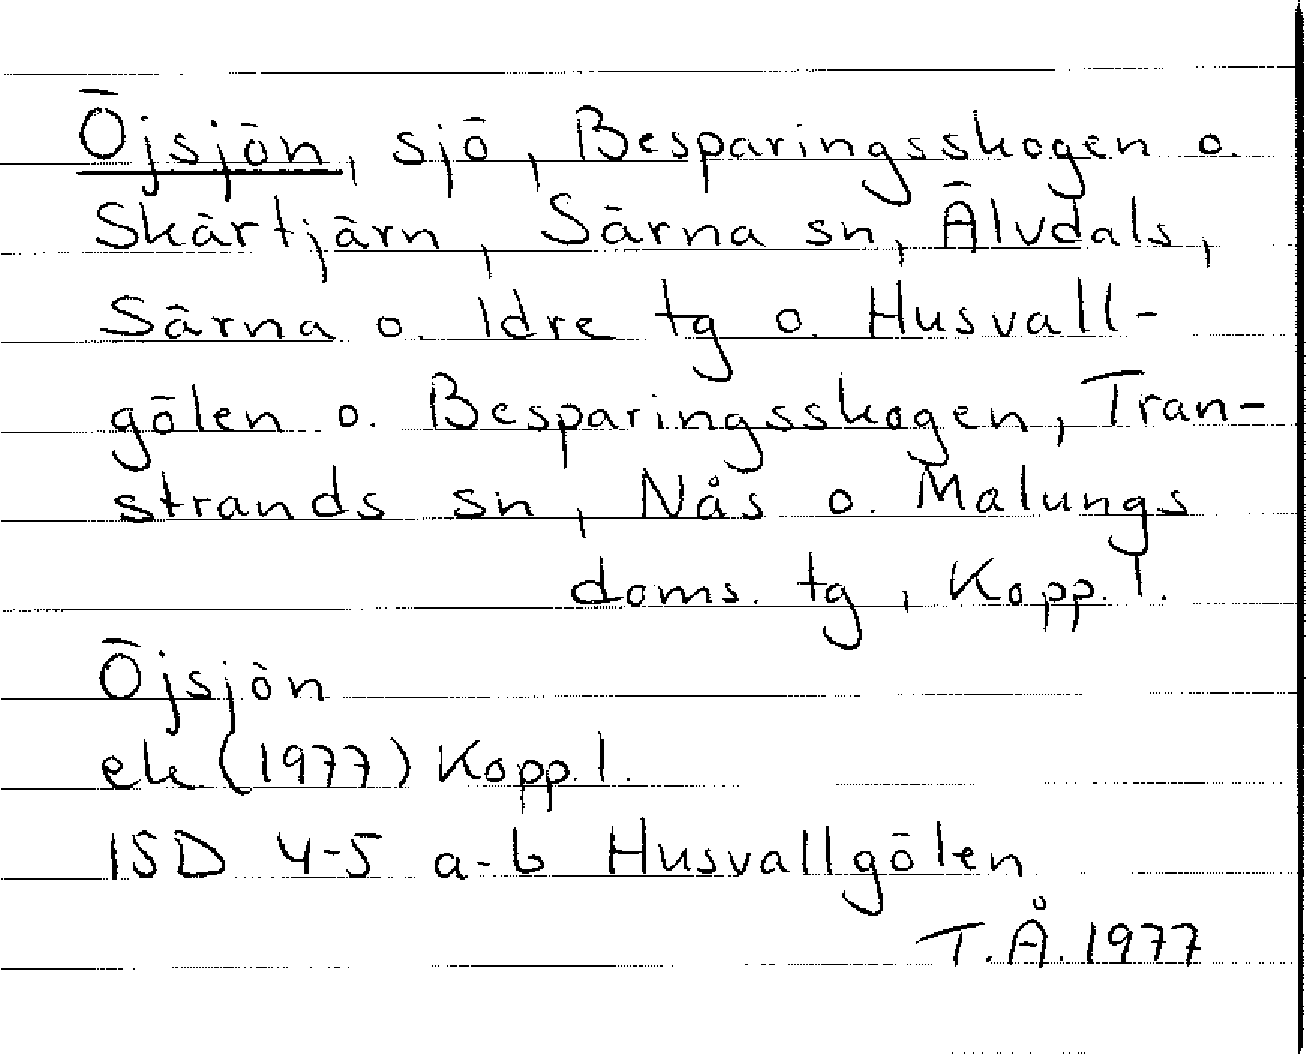 Öjsjön, sjö, Besparingsskogen o.
Skärtjärn, Särna sn, Älvdals,
Särna o. Idre tg o. Husvall-
gölen o. Besparingsskogen, Tran-
strands sn, Nås o. Malungs
doms. tg, Kopp. l.
Öjsjön
ek (1977) Kopp. l.
15D 4-5 a-b Husvallgölen
T.Å. 1977